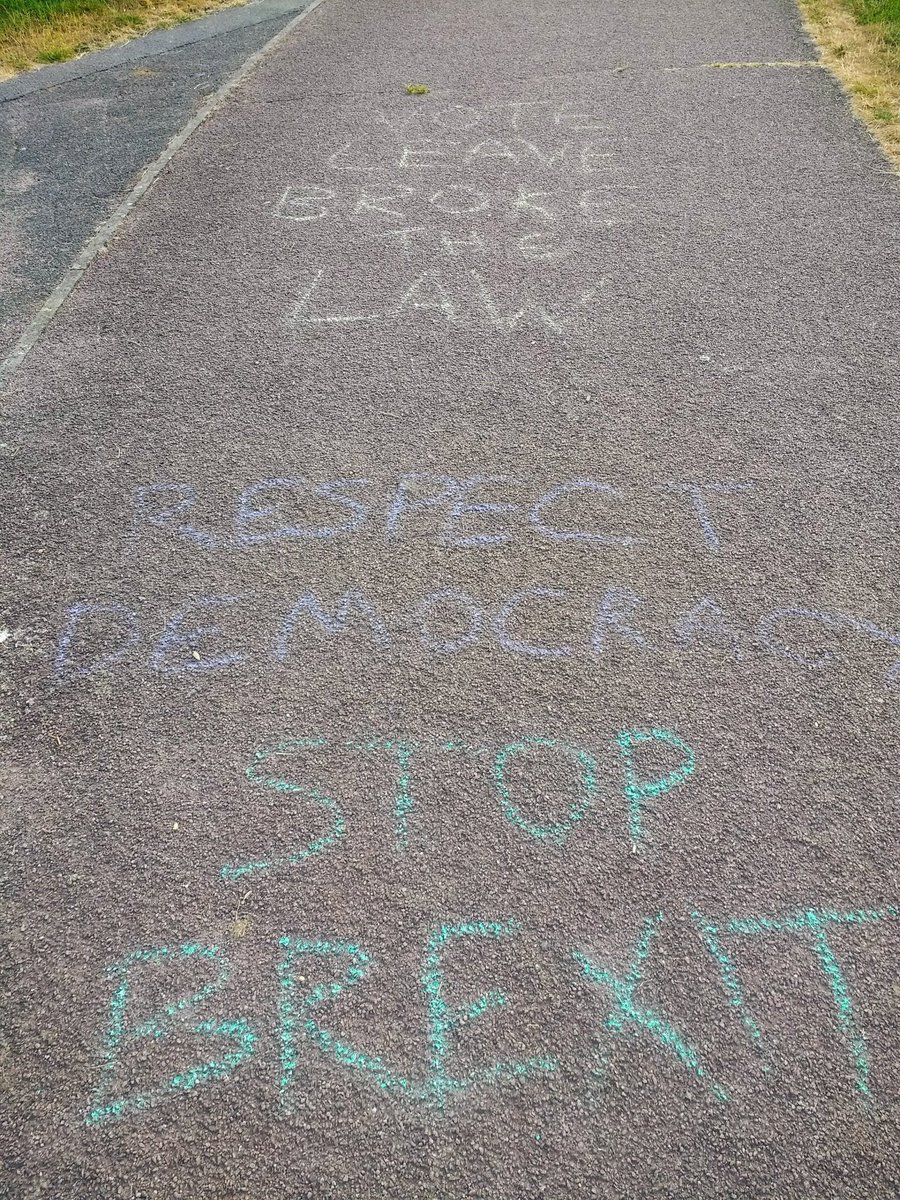 VOTE
LEAVE
BROKE
THE
LAW
RESPECT
DEMOCRACY
STOP
BREXIT